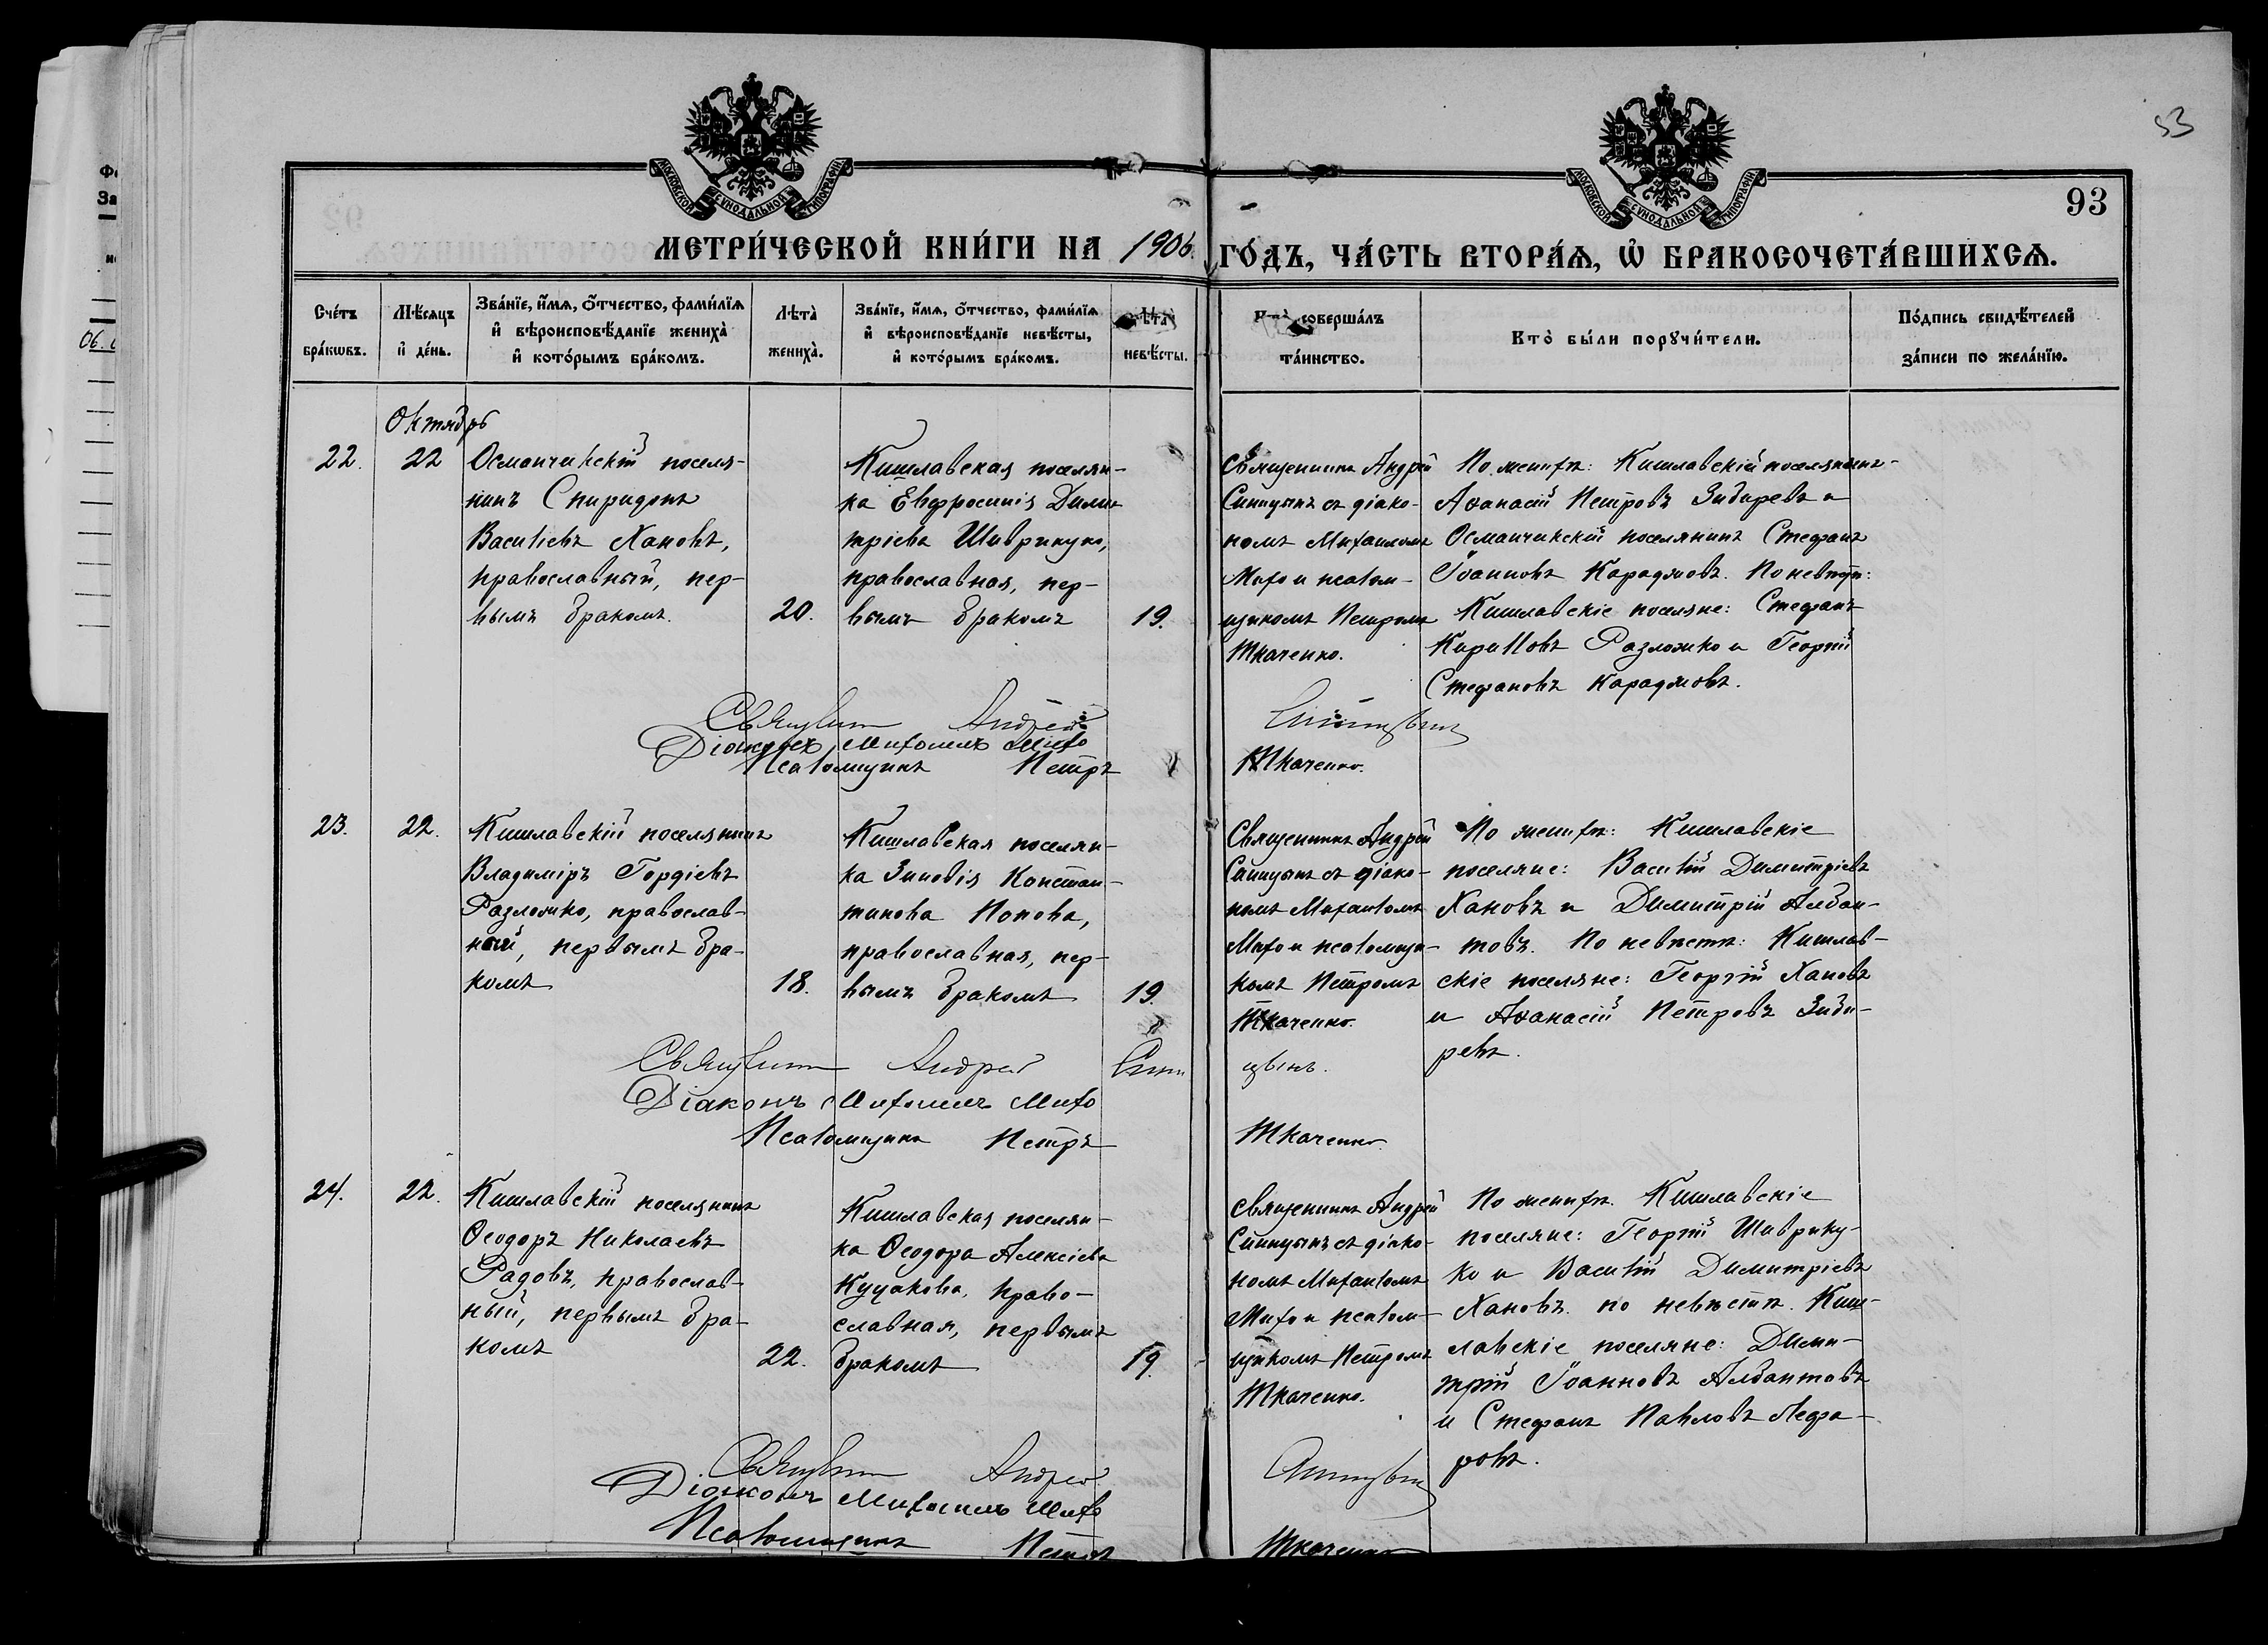 53
93
МЕТРИ́ЧЕСКОЙ КНИ́ГИ НА 1906. ГО́ДЪ, ЧА́СТЬ ВТОРА́Я, Ѽ БРАКОСОЧЕТА́ВШИХСЯ.
Сче́тъ бра́кѡвъ.
Мѣ́сяцъ и҆ де́нь.
Зва́нїе, и҆́мя, ѻ҆́тчество, фами́лїя
и҆ вѣроисповѣ́данїе жениха̀
и҆ кото́рымъ бра́комъ.
Лѣта̀ жениха̀.
Зва́нїе, и҆́мя, ѻ҆́тчество, фами́лїя
и҆ вѣроисповѣ́данїе невѣ́сты,
и҆ кото́рымъ бра́комъ.
Лѣта̀ невѣ́сты.
Кто̀ соверша́лъ та́инство.
Кто̀ бы́ли порꙋчи́тели.
По́дпись свидѣ́телей
за́писи по жела́нїю.
Октябрь
22.
22
Османчикскій поселя-
нинъ Спиридонъ
Василіевъ Хановъ,
православный, пер-
вымъ бракомъ.
20.
Кишлавская поселян-
ка Евфросинія Дими-
тріева Шаврикуко,
православная, пер-
вымъ бракомъ
19.
Священникъ Андрей
Синицынъ съ діако-
номъ Михаиломъ
Михо и псалом-
щикомъ Петромъ
Ткаченко.
По женихѣ: Кишлавскій поселянинъ
Аѳанасій Петровъ Зибиревъ и
Османчикскій поселянинъ Стефанъ
Іоанновъ Караджовъ. По невѣстѣ:
Кишлавскіе поселяне: Стефанъ
Кирилловъ Разложко и Георгій
Стефановъ Караджовъ.
Священникъ Андрей Синицынъ
Діаконъ Михаилъ Михо
Псаломщикъ Петръ Ткаченко.
23.
22.
Кишлавскій поселянинъ
Владиміръ Гордіевъ
Разложко, православ-
ный, первымъ бра-
комъ
18.
Кишлавская поселян-
ка Зиновія Констан-
тинова Попова,
православная, пер-
вымъ бракомъ
19.
Священникъ Андрей
Синицынъ съ діако-
номъ Михаиломъ
Михо и псаломщи-
комъ Петромъ
Ткаченко.
По женихѣ: Кишлавскіе
поселяне: Василій Димитріевъ
Хановъ и Димитрій Албан-
товъ. По невѣстѣ: Кишлав-
скіе поселяне: Георгій Хановъ
и Аѳанасій Петровъ Зиби-
ревъ.
Священникъ Андрей Синицынъ.
Діаконъ Михаилъ Михо
Псаломщикъ Петръ Ткаченко
24.
22.
Кишлавскій поселянинъ
Ѳеодоръ Николаевъ
Радовъ, православ-
ный, первымъ бра-
комъ
22.
Кишлавская поселян-
ка Ѳеодора Алексіева
Куцакова, право-
славная, первымъ
бракомъ
19.
Священникъ Андрей
Синицынъ съ діако-
номъ Михаиломъ
Михо и псалом-
щикомъ Петромъ
Ткаченко.
По женихѣ. Кишлавскіе
поселяне: Георгій Шаврику-
ко и Василій Димитріевъ
Хановъ. по невѣстѣ. Киш-
лавскіе поселяне: Дими-
трій Іоанновъ Албантовъ
и Стефанъ Павловъ
ровъ.
Священникъ Андрей Синицынъ
Діаконъ Михаилъ Михо
Псаломщикъ Петръ Ткаченко